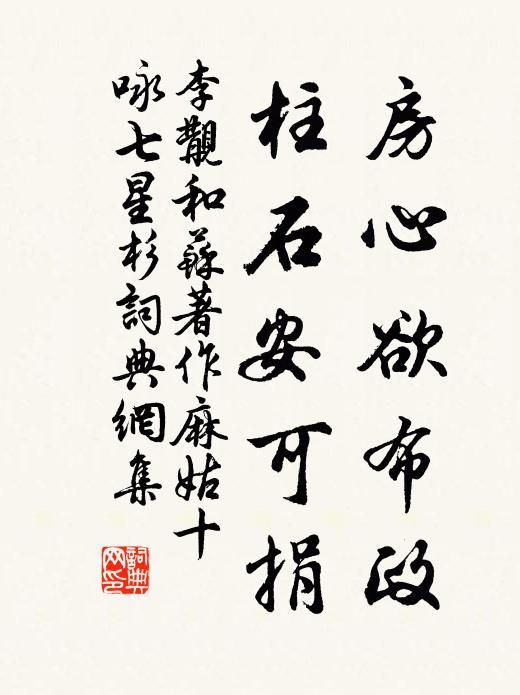 房心欲布政
柱石安可捐
李觀和蘇著作麻姑十
咏七星杉詞典網集
詞典網印